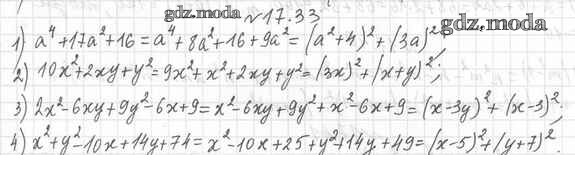 gdz.moda №17.33 gdz.moda
1) a⁴+17a²+16=a⁴+8a²+16+9a²=(a²+4)²+(3a)²;
2) 10x²+2xy+y²=9x²+x²+2xy+y²=(3x)²+(x+y)²;
3) 2x²-6xy+9y²-6x+9=x²-6xy+9y²+x²-6x+9=(x-3y)²+(x-3)²;
4) x²+y²-10x+14y+74=x²-10x+25+y²+14y+49=(x-5)²+(y+7)².